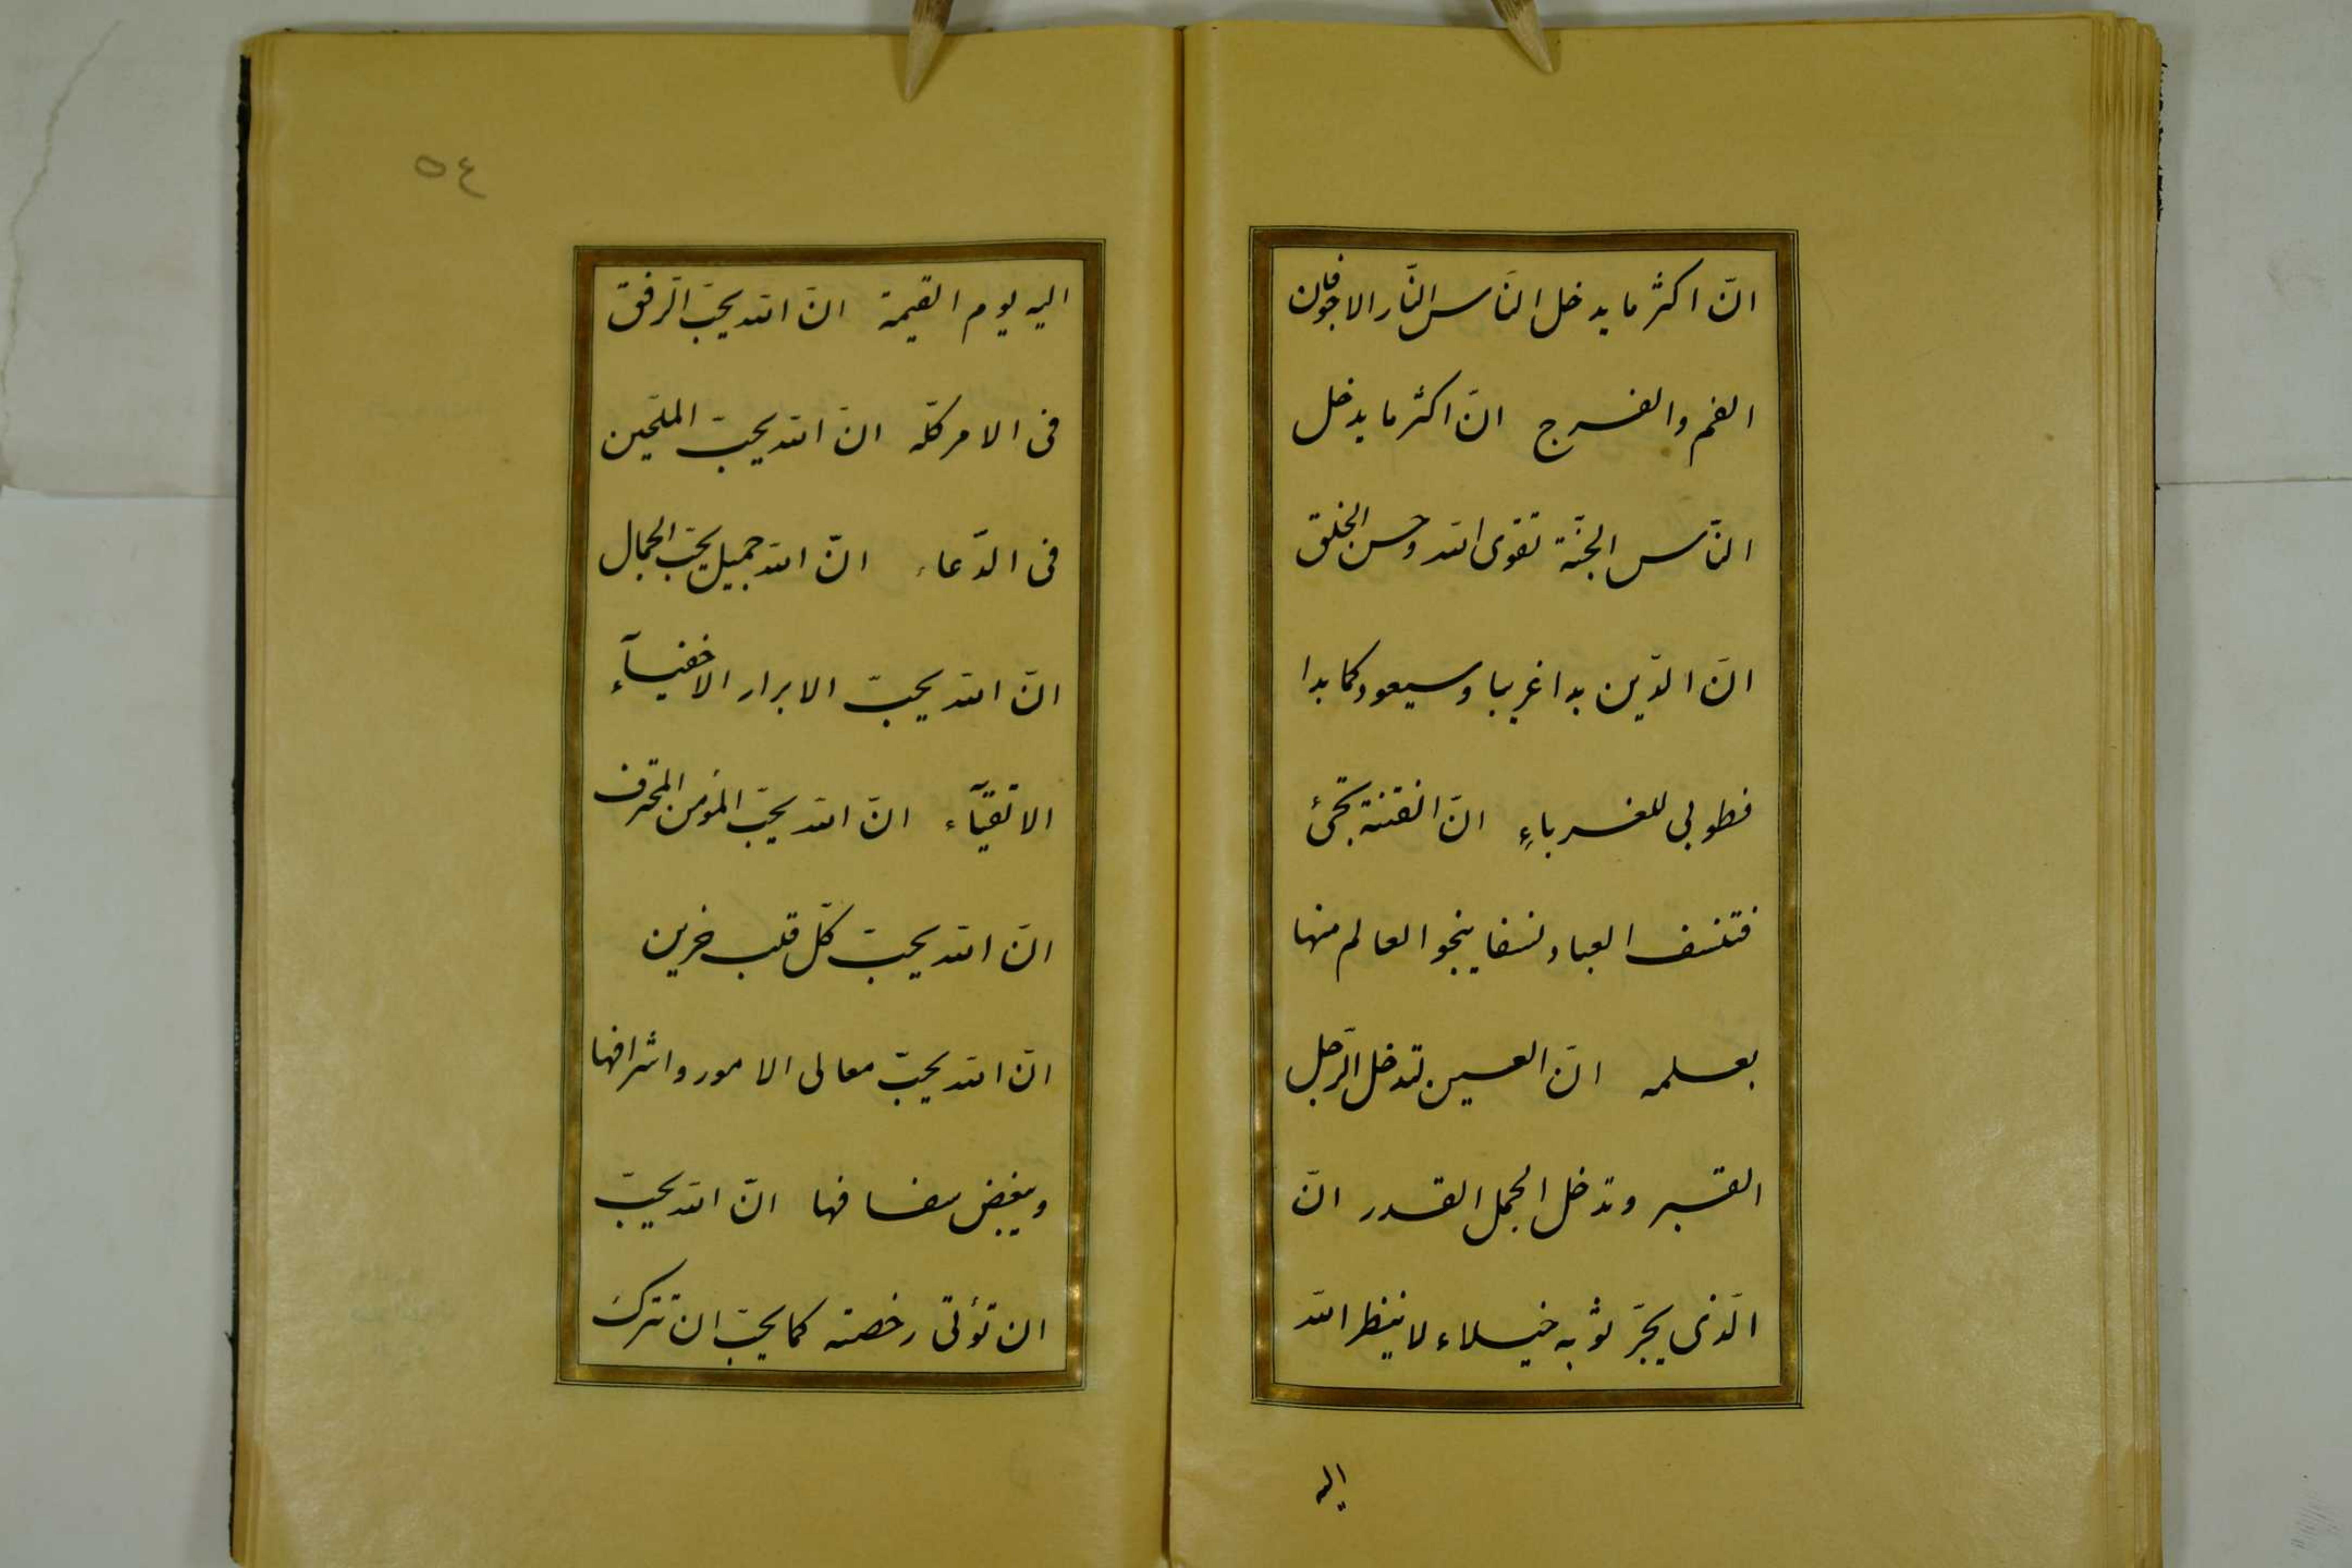 انّ اكثر ما يدخل النّاس النّار الاجوفان
الفم والفرج انّ اكثر ما يدخل
النّاس الجنّة تقوى الله وحسن الخلق
انّ الدّين بدا غريبا وسيعود كما بدا
فطوبى للغرباءِ انّ الفتنة تجئ
فتنسف العباد نسفا ينجو العالم منها
بعلمه انّ العين تدخل الرّجل
القبر وتدخل الجمل القدر انّ
الّذى يجرّ ثوبه خيلاء لا ينظر الله
اليه
٥٤
اليه يوم القيمة انّ الله يحبّ الرّفق
فى الامر كلّه انّ الله يحبّ الملحّين
فى الدّعاء انّ الله جميل يحبّ الجمال
انّ الله يحبّ الابرار الاخفيآء
الاتقيآء انّ الله يحبّ المؤمن المحترف
انّ الله يحبّ كلّ قلب حزين
انّ الله يحبّ معالى الامور واشرافها
ويبغض سفسافها انّ الله يحبّ
ان تؤتى رخصته كما يحبّ ان تترك